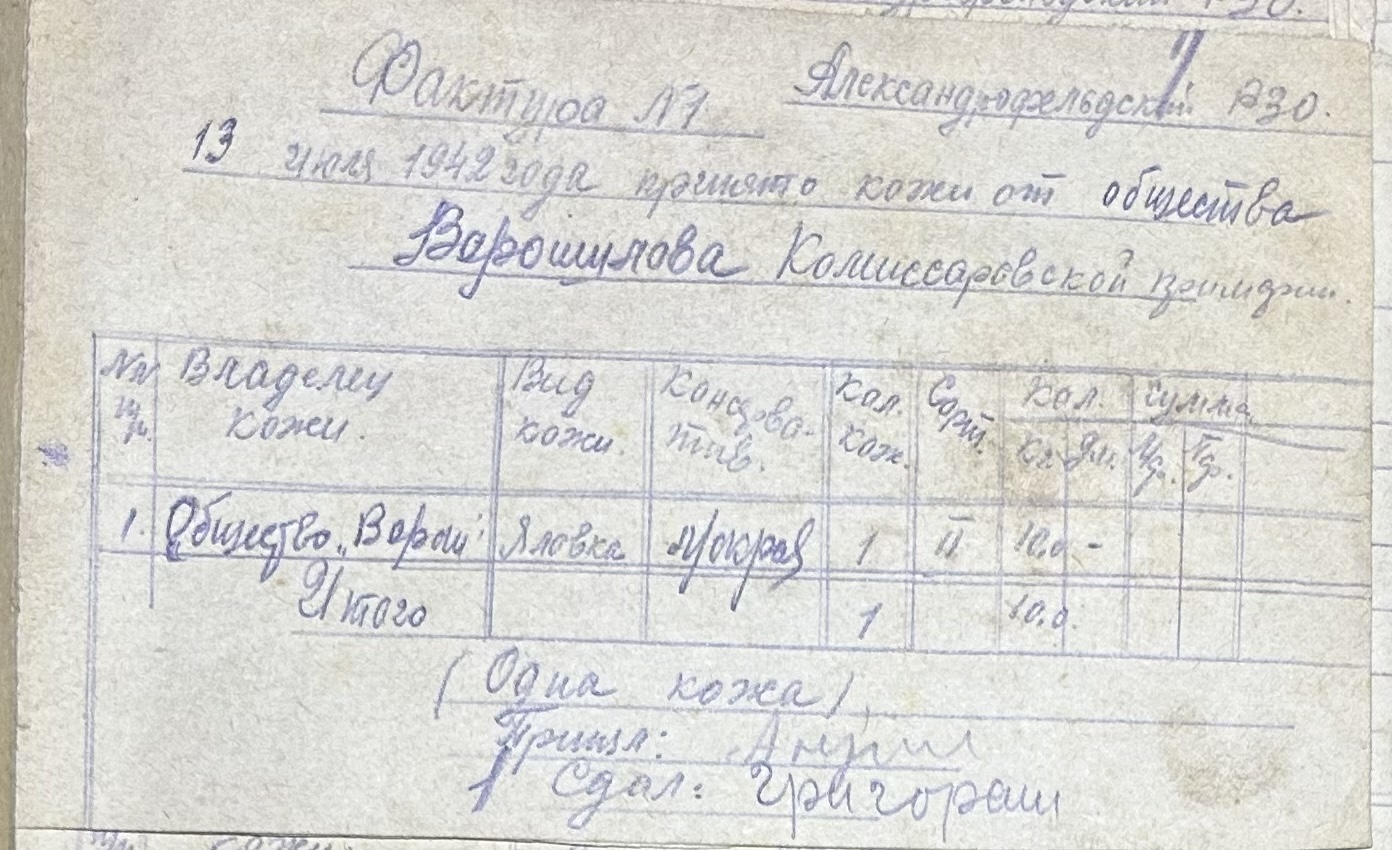 Фактура №1 Александрофельдский РЗО.
13 июля 1942 года принято кожи от общества
Ворошилова Комиссаровской примарии.
№№ пп. Владелец кожи. Вид кожи. Консерва-тив. Кол. кож. Сорт. Кол. Сумма
Кг. Дм. Цр. Гр.
1. Общество „Ворош" Яловка м/окрая 1 II 10.0 -
Итого 1 10.0.
(Одна кожа)
Принял:
Сдал: Григораш
кожи.